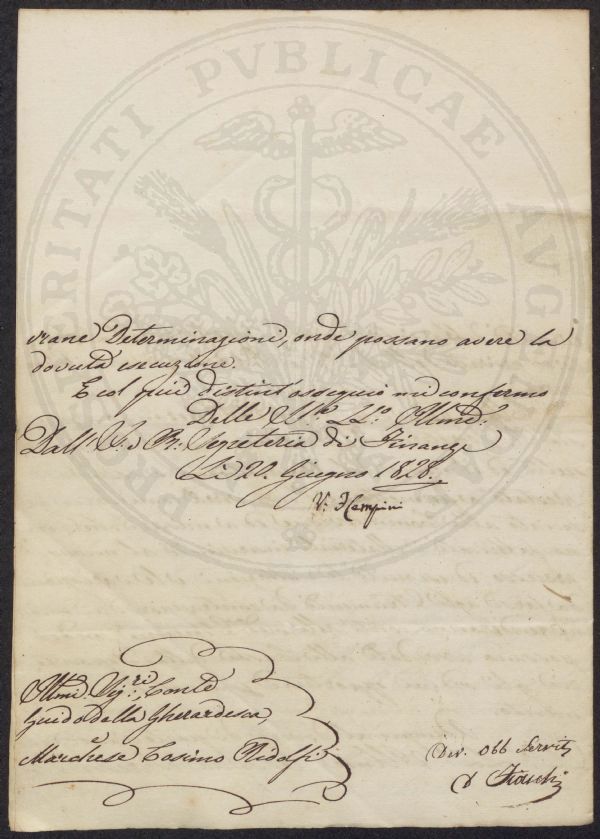 PROSPERITATI PVBLICAE AVGENDAE
rane Determinazioni, onde possano avere la
dovuta esecuzione.
E col più distint' ossequio mi confermo
Delle
Dall' R: Segreteria di Finanze
Li 20. Giugno 1828.
V: Hempini
Illmi. Sigri. Conte
Guido della Gherardesca,
Marchese Cosimo Ridolfi
Dev. Obb Servit